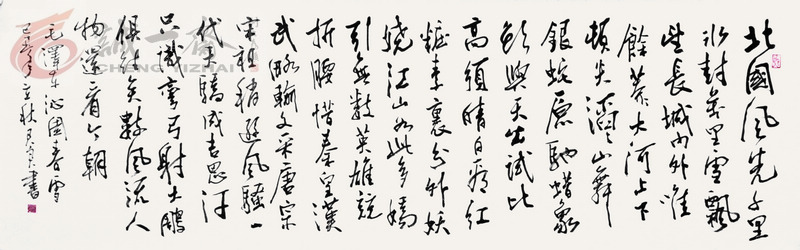 北國風光千里
冰封萬里雪飄
望長城內外唯
餘莽大河上下
頓失滔滔山舞
銀蛇原馳蠟象
欲與天公試比
高須晴日看紅
粧素裹分外妖
嬈江山如此多嬌
引無數英雄競
折腰惜秦皇漢
武略輸文采唐宗
宋祖稍遜風騷一
代天驕成吉思汗
只識彎弓射大鵰
俱往矣數風流人
物還看今朝
毛澤東沁園春雪
立秋書
CHENGYIZHAI